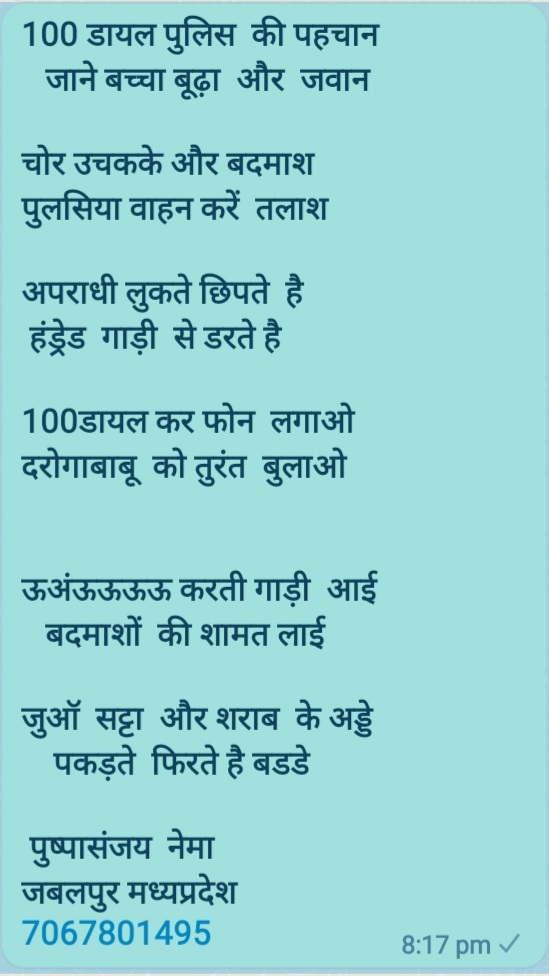 100 डायल पुलिस की पहचान
जाने बच्चा बूढ़ा और जवान
चोर उचकके और बदमाश
पुलसिया वाहन करें तलाश
अपराधी लुकते छिपते है
हंड्रेड गाड़ी से डरते है
100डायल कर फोन लगाओ
दरोगाबाबू को तुरंत बुलाओ
ऊअंऊऊऊऊ करती गाड़ी आई
बदमाशों की शामत लाई
जुऑ सट्टा और शराब के अड्डे
पकड़ते फिरते है बडडे
पुष्पासंजय नेमा
जबलपुर मध्यप्रदेश
7067801495
8:17 pm ✓